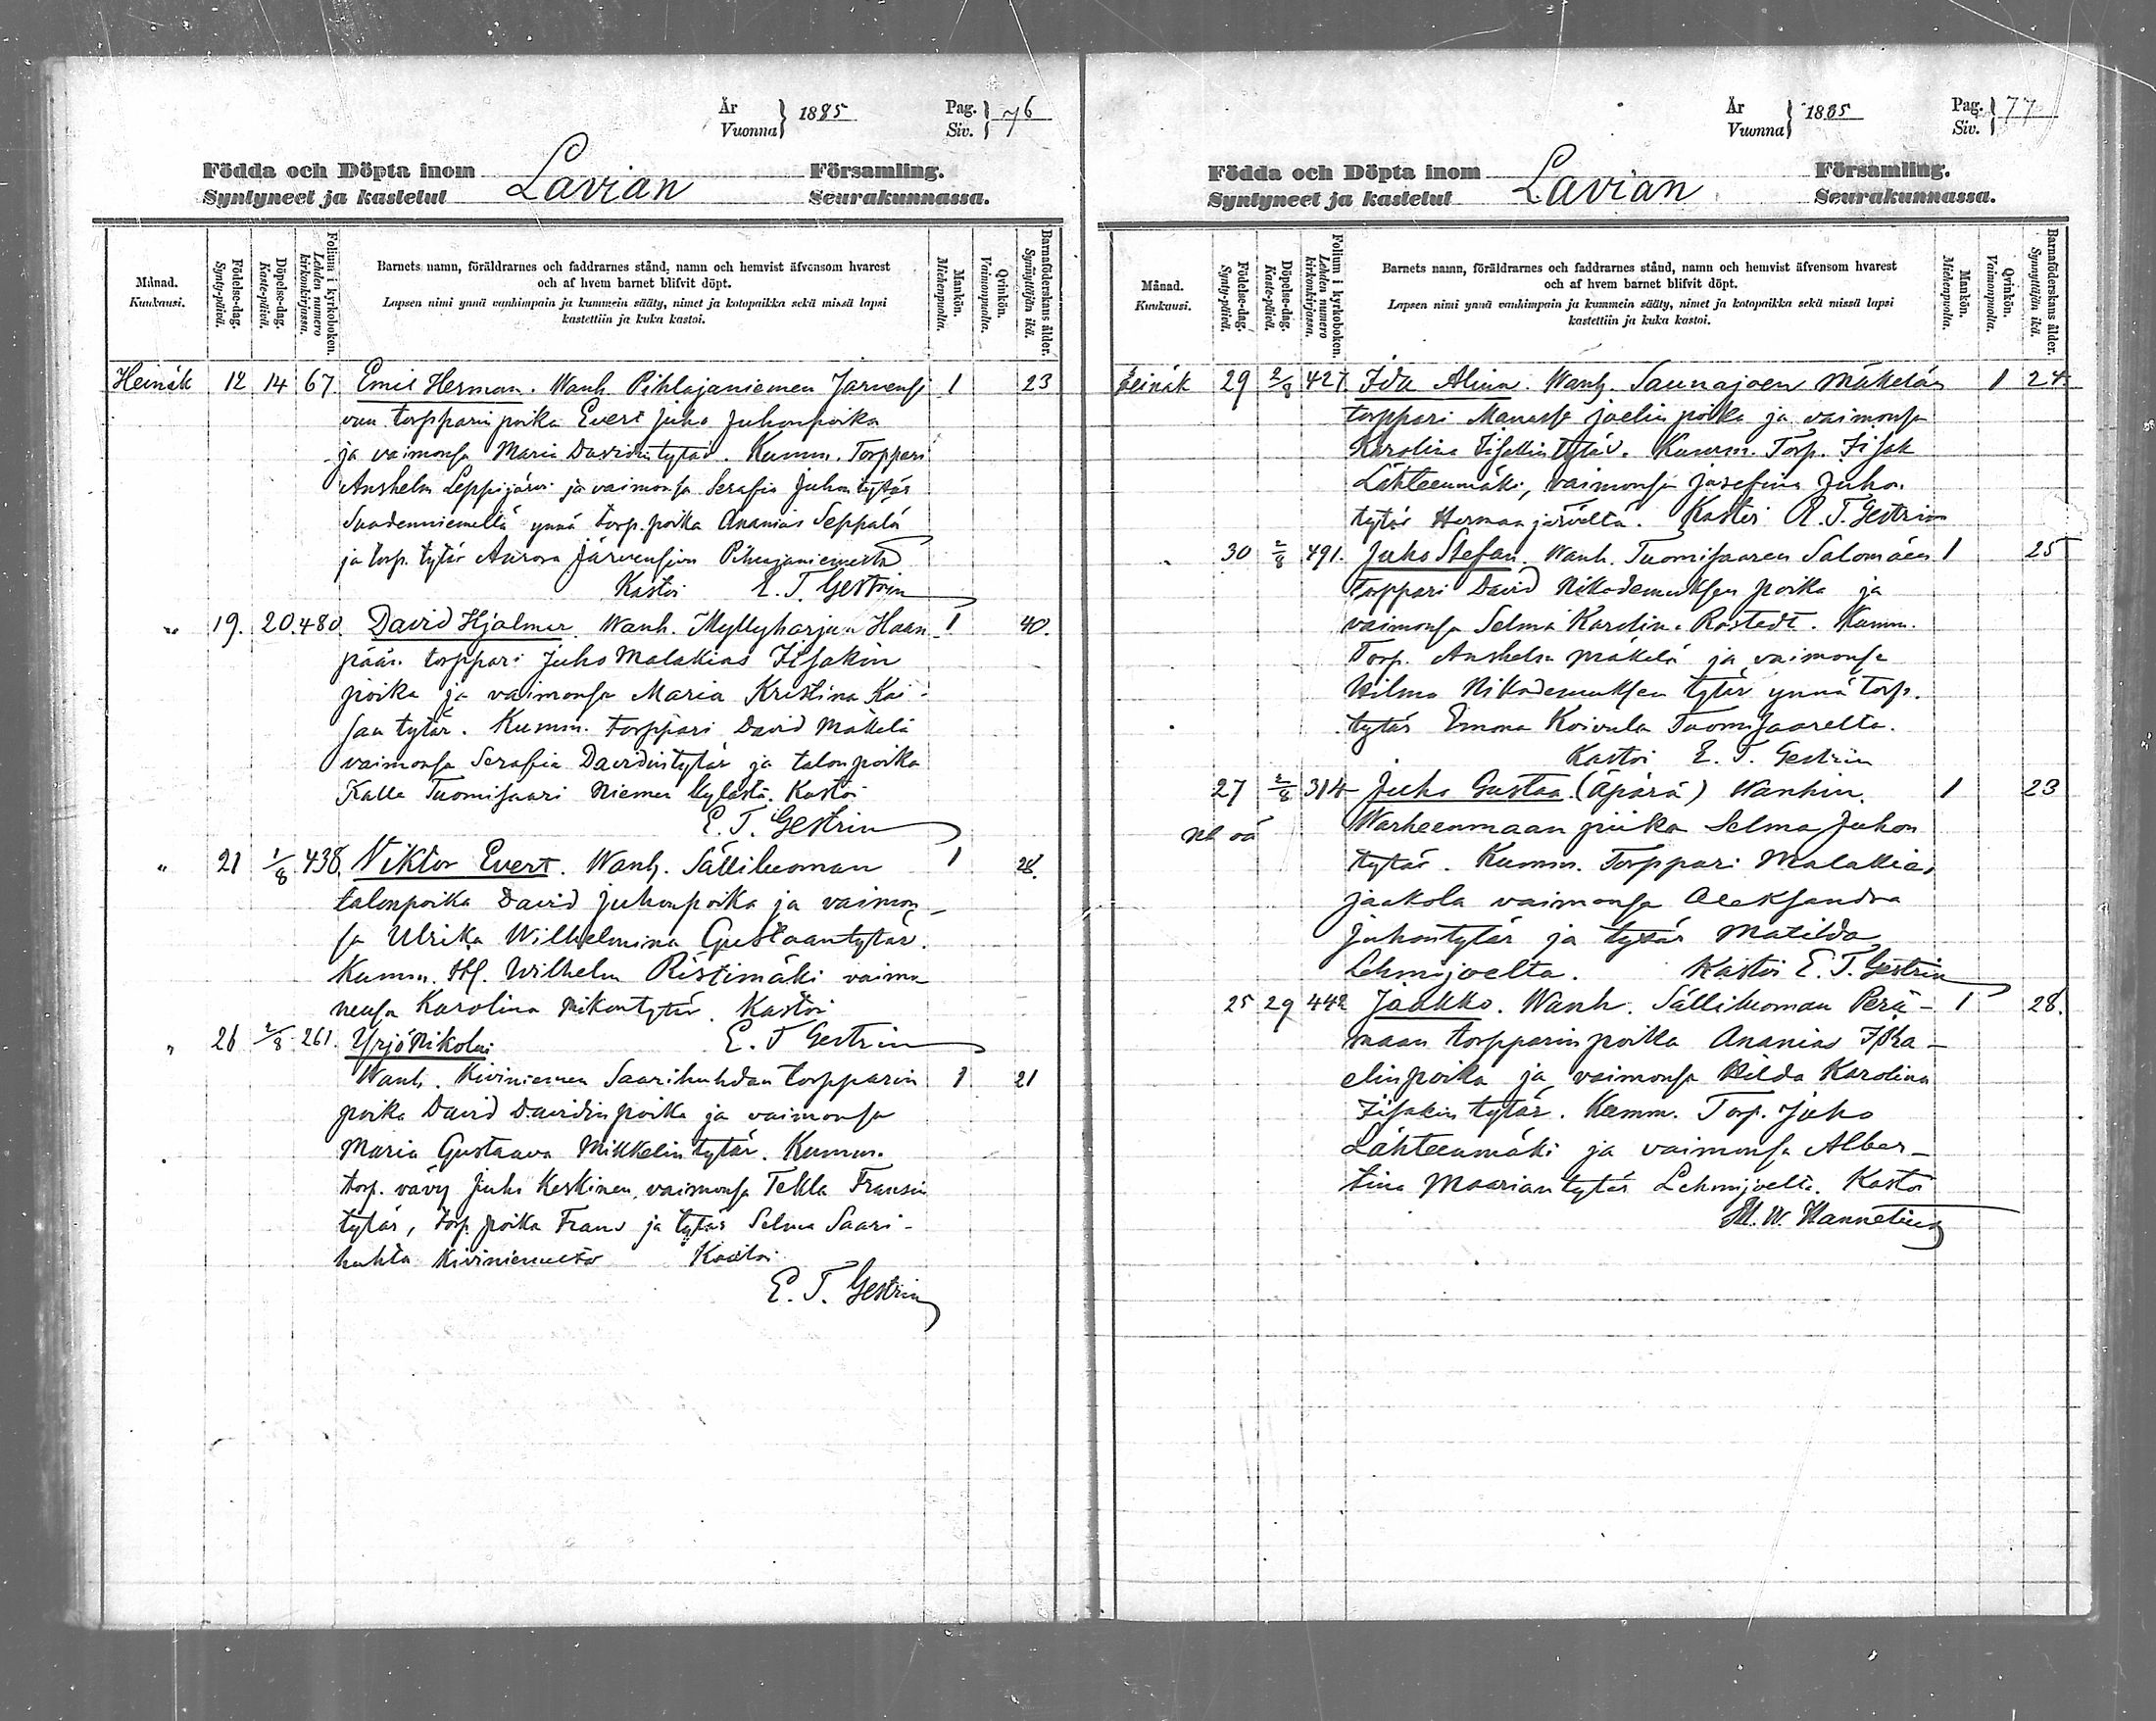 År
Vuonna } 1885
Pag.
Siv. } 76
Födda och Döpta inom Församling.
Syntyneet ja kastetut Lavian Seurakunnassa.
Månad. Kuukausi.
Födelse-dag. Synty-päivä.
Döpelse-dag. Kaste-päivä.
Folium i kyrkoboken. Lehden numero kirkonkirjassa.
Barnets namn, föräldrarnes och faddrarnes stånd, namn och hemvist äfvensom hvarest
och af hvem barnet blifvit döpt.
Lapsen nimi ynnä vanhimpain ja kummein sääty, nimet ja kotopaikka sekä missä lapsi
kastettiin ja kuka kastoi.
Mankön. Miehenpuolia.
Qvinkön. Vaimonpuolia.
Barnaföderskans ålder. Synnyttäjän ikä.
Heinäk 12 14 67 Emil Herman. Wanh. Pihlajaniemen Järvens 1 23
vun torpparin poika Evert Juho Juhonpoika
ja vaimonsa Maria Davidintytär. Kumm. Torppari
Anshelm Leppijärvi ja vaimonsa Serafia Juhontytär
Suodenniemeltä ynnä torp. poika Ananias Seppälä
ja torp. tytär Aurora Järvensivu
Kastoi E. T. Gestrin
" 19. 20. 480. David Hjalmar. Wanh. Myllyharjun Haan 1 40.
pään torppari Juho Malakias Iisakin
poika ja vaimonsa Maria Kristina Kai
san tytär. Kumm. torppari David Mäkelä
vaimonsa Serafia Davidintytär ja talonpoika
Kalle Tuomisaari Niemen kylästä. Kastoi
E. T. Gestrin
" 21 1/8 438. Viktor Evert. Wanh. Sälliluoman 1 28.
talonpoika David Juhonpoika ja vaimon-
sa Ulrika Wilhelmina Gustaantytär.
Kumm. Wilhelm Ristimäki vaimo
nensa Karolina Mikontytär. Kastoi
" 26 2/8 261. Yrjö Nikolai E. T Gestrin
Wanh. Kiviniemen Saarihuhdan torpparin 1 21
poika David Davidinpoika ja vaimonsa
Maria Gustaava Mikkelintytär. Kumm.
torp. vävy Juho Keskinen, vaimonsa Tekla Fransin
tytär, torp. poika Frans ja tytär Selma Saari-
huhta Kiviniemeltä Kastoi
E. T. Gestrin
År
Vuonna } 1885
Pag.
Siv. } 77
Födda och Döpta inom Församling.
Syntyneet ja kastetut Lavian Seurakunnassa.
Månad. Kuukausi.
Födelse-dag. Synty-päivä.
Döpelse-dag. Kaste-päivä.
Folium i kyrkoboken. Lehden numero kirkonkirjassa.
Barnets namn, föräldrarnes och faddrarnes stånd, namn och hemvist äfvensom hvarest
och af hvem barnet blifvit döpt.
Lapsen nimi ynnä vanhimpain ja kummein sääty, nimet ja kotopaikka sekä missä lapsi
kastettiin ja kuka kastoi.
Mankön. Miehenpuolia.
Qvinkön. Vaimonpuolia.
Barnaföderskans ålder. Synnyttäjän ikä.
Heinäk 29 2/8 427 Ida Alina. Wanh. Saunajoen Mäkelän 1 24
torppari Manasse Joelin poika ja vaimonsa
Karolina Iisakintytär. Kumm. Torp. Iisak
Lähteenmäki, vaimonsa Josefina Juhon
tytär Hermaajärveltä. Kastoi E. T. Gestrin
" 30 2/8 491. Juho Stefan. Wanh. Tuomisaaren Salomäen 1 25
torppari David Nikodemuksen poika ja
vaimonsa Selma Karolina Rostedt. Kumm.
Torp. Anshelm Mäkelä ja vaimonsa
Wilma Nikodemuksen tytär ynnä torp.
tytär Emma Koivula Tuomisaarelta.
Kastoi E. T. Gestrin
27 2/8 314 Juho Gustaa (Äpärä) Wanhin. 1 23
Warheenmaan piika Selma Juhon
tytär. Kumm. Torppari Malakias
Jaakola vaimonsa Aleksandra
Juhontytär ja tytär Matilda
Lehmijoelta. Kastoi E. T. Gestrin
25 29 442 Jaakko. Wanh. Sälliluoman Perä- 1 28.
maan torpparinpoika Ananias Isra-
elinpoika ja vaimonsa Hilda Karolina
Iisakin tytär. Kumm. Torp. Juho
Lähteenmäki ja vaimonsa Alber-
tina Maariantytär Lehmijoelta. Kastoi